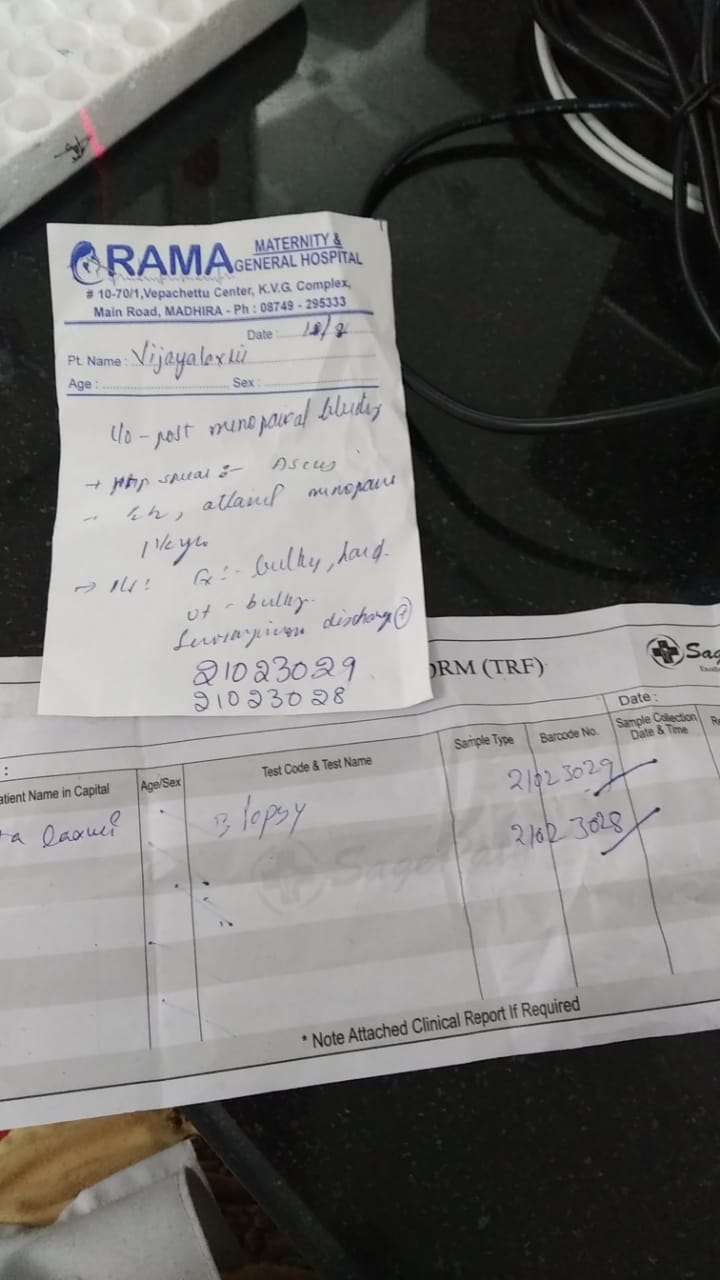 RAMA MATERNITY &
GENERAL HOSPITAL
# 10-70/1,Vepachettu Center, K.V.G. Complex,
Main Road, MADHIRA - Ph : 08749 - 295333
Date :
Pt. Name : Vijayalaxmi
Age : Sex :
c/o - post menopausal bleeding
→ pap smear :- Ascus
attained menopause
1½ yr
bulky, hard
ut - bulky.
discharge +
21023029
21023028
ORM (TRF)
Sag
Date :
:
atient Name in Capital Age/Sex Test Code & Test Name Sample Type Barcode No. Sample Collection Date & Time Re
a laxmi Biopsy 21023029
21023028
SagePa
* Note Attached Clinical Report If Required